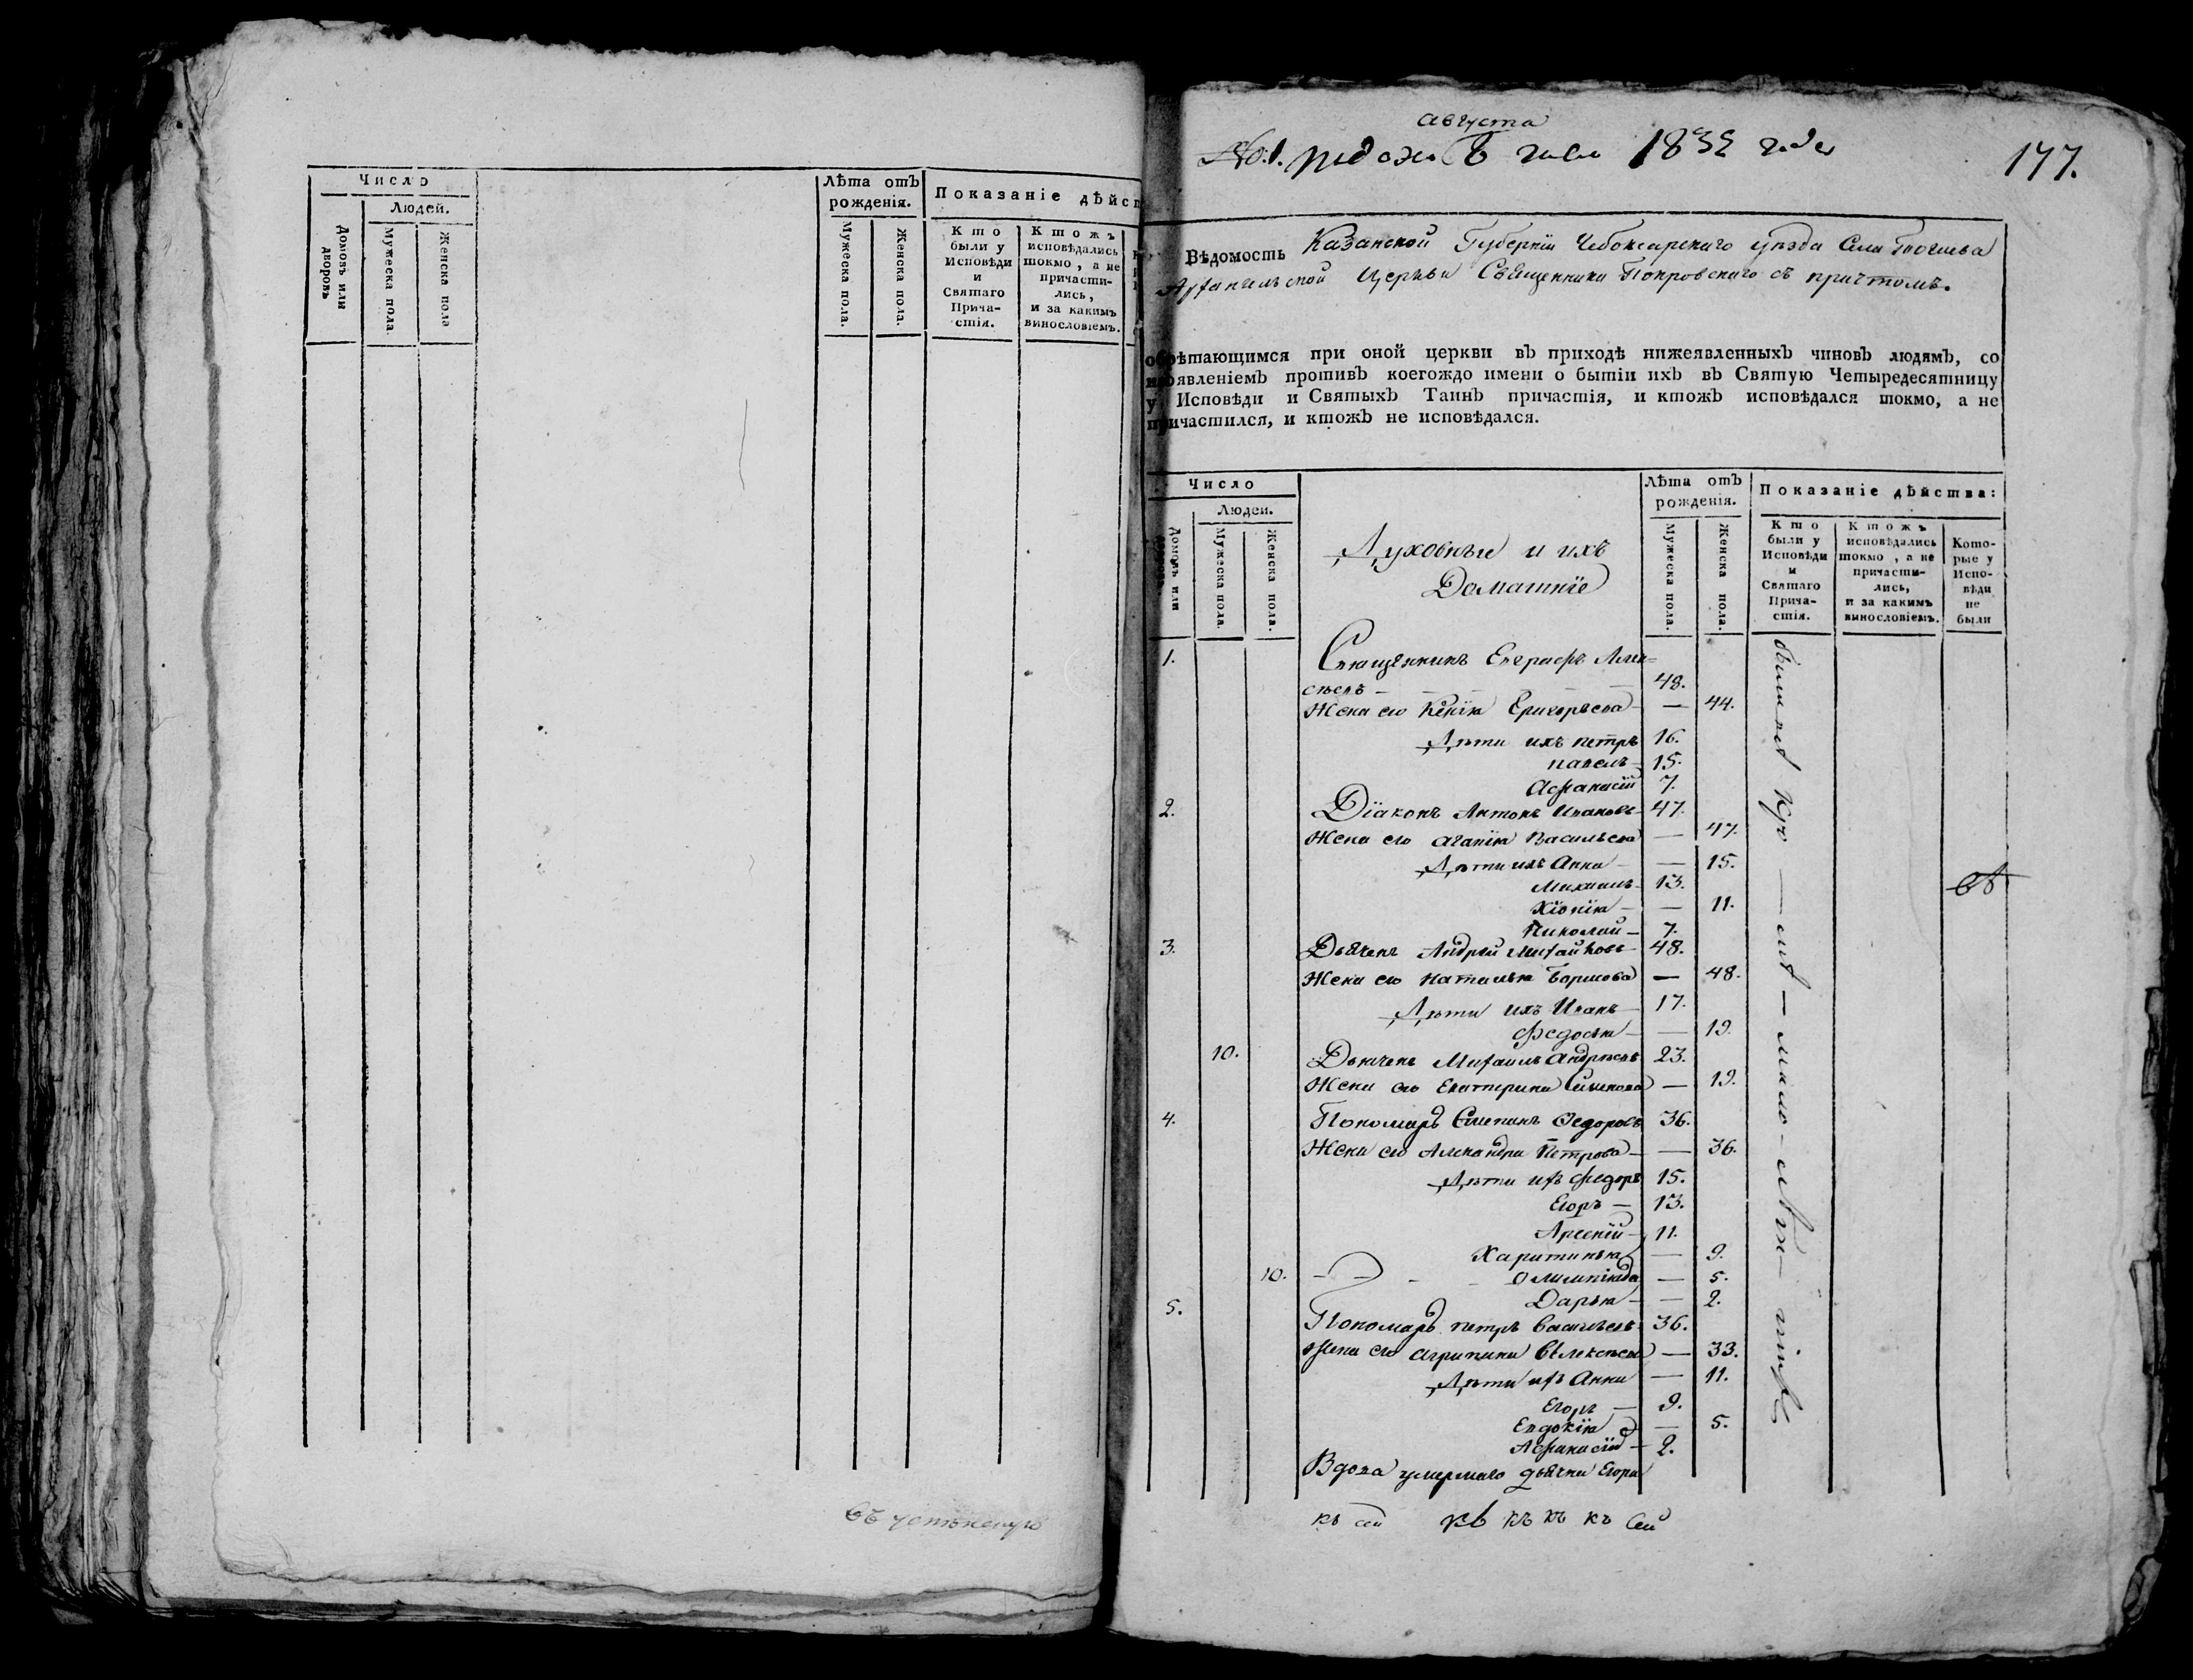 Число
Людей.
Домовъ или дворовъ
Мужеска пола.
Женска пола
Лѣта отъ рожденія.
Мужеска пола.
Женска пола.
Показаніе дѣйст
Кто были у Исповѣди и Святаго Прича-стія.
Ктожъ исповѣдались токмо, а не причасти-лись, и за какимъ винословіемъ.
августа
№.1. числа 1832 года
177.
Вѣдомость Казанской Губерніи Чебоксарскаго уѣзда Села
Архангельской Церкви Священника Покровскаго съ причтомъ.
обрѣтающимся при оной церкви въ приходѣ нижеявленныхъ чиновъ людямъ, со
изъявленіемъ противъ коегождо имени о бытіи ихъ въ Святую Четыредесятницу
у Исповѣди и Святыхъ Таинъ причастія, и ктожъ исповѣдался токмо, а не
причастился, и ктожъ не исповѣдался.
Число
Людей.
Домовъ или
Мужеска пола.
Женска пола.
Духовные и ихъ
Домашніе
Лѣта отъ рожденія.
Мужеска пола.
Женска пола.
Показаніе дѣйства:
Кто были у Исповѣди и Святаго Прича-стія.
Ктожъ исповѣдались токмо, а не причасти-лись, и за какимъ винословіемъ.
Кото-рые у Испо-вѣди не были
1. Священникъ Евграфъ Алек=
сѣевъ - 48.
Жена его Ксенія Григорьева — 44.
Дѣти ихъ Петръ 16.
Павелъ 15.
Афанасій 7.
2. Діаконъ Антонъ Ивановъ 47.
Жена его Агапія Васильева — 47.
Дѣти ихъ Анна — 15.
Михаилъ 13.
Хіонія — 11.
Николай 7.
3. Дьячекъ Андрей Михайловъ 48.
Жена его Наталья Борисова — 48.
Дѣти ихъ Иванъ 17.
Федосья — 19.
10. Дьячекъ Михаилъ Андреевъ 23.
Жена его Екатерина — 19.
4. Пономарь Степанъ Федоровъ 36.
Жена его Александра Петрова — 36.
Дѣти ихъ Федоръ 15.
Егоръ 13.
Арсеній 11.
Харитинья — 9.
10. Олимпіада — 5.
Дарья — 2.
5. Пономарь Петръ Васильевъ 36.
Жена его Агрипина Алексѣева — 33.
Дѣти ихъ Анна — 11.
Егоръ 9.
Евдокія — 5.
Афанасій 2.
Вдова умершаго дьячка Егора
были всѣ кро — мѣ — мало — лѣт — нихъ
къ сей къ къ къ къ сей